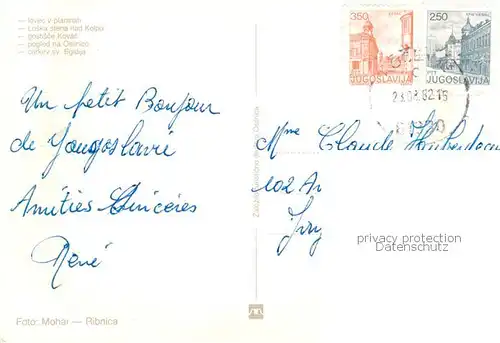 — lovec v planinah
— Loška stena nad Kolpo
— gostišče Kovač
— pogled na Osilnico
— cerkev sv. Egidija
350
JUGOSLAVIJA
250
JUGOSLAVIJA
23.08.82-16
Un petit Bonjour
de Yougoslavie
Amitiés Sincères
René
Mme Claude
102 Av
Ivry
privacy protection
Datenschutz
Foto: Mohar — Ribnica